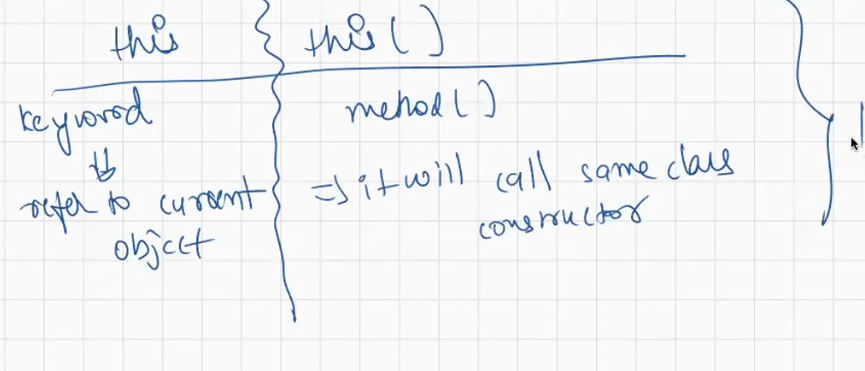 this
this()
keyword
method()
refer to current
object
=> it will call same class
constructor